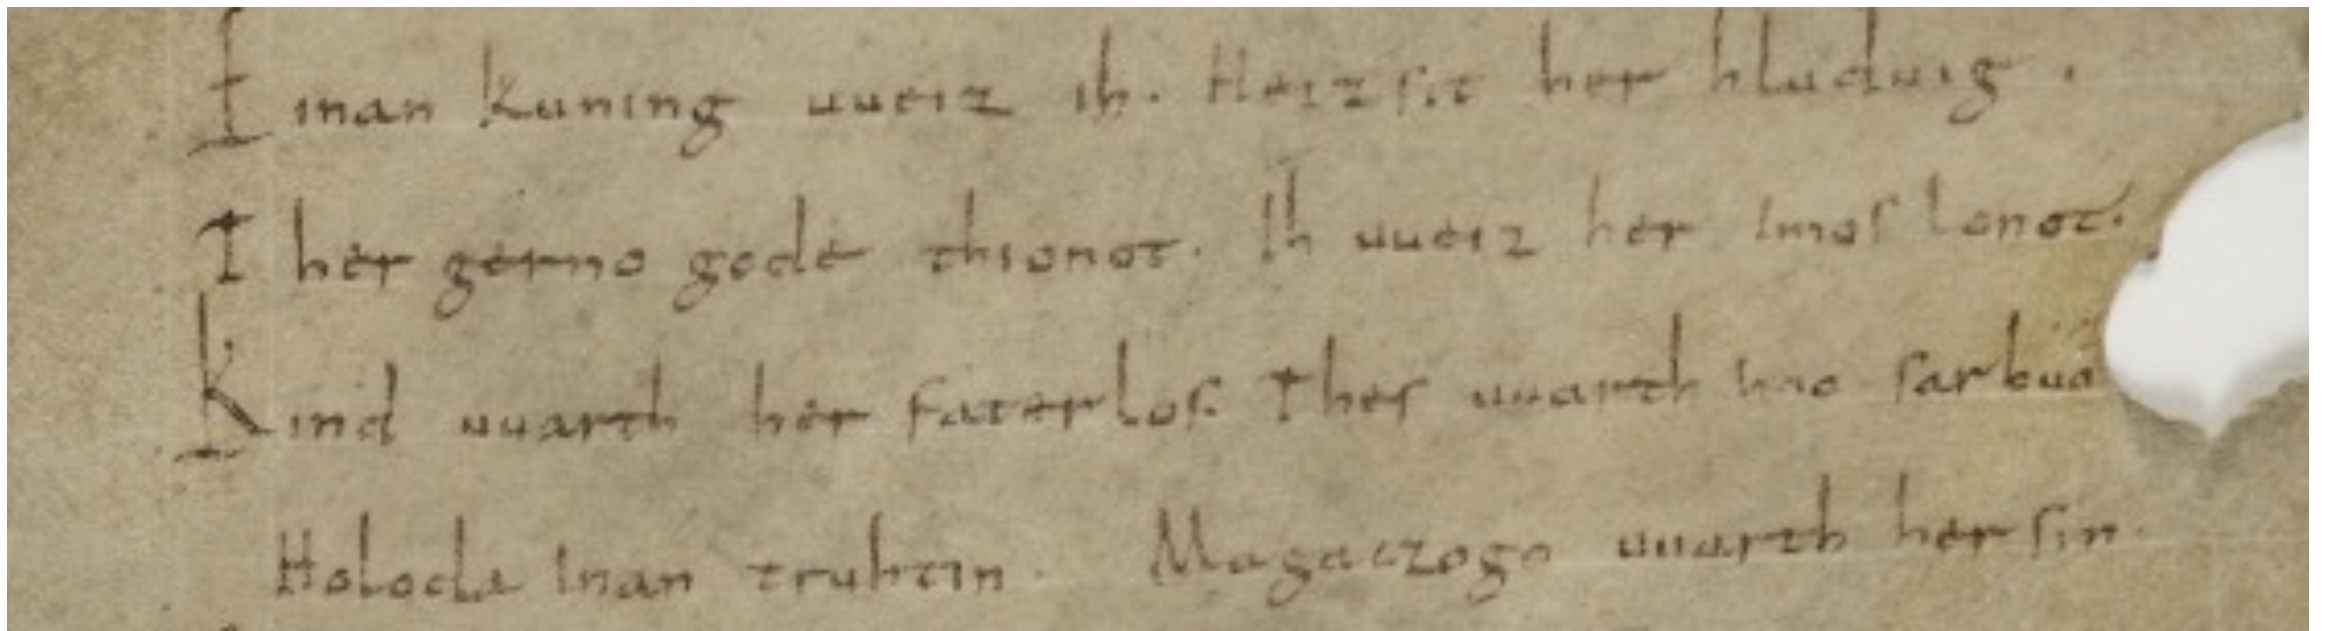 Einan kuning uueiz ih. Heizsit her hluduig.
Ther gerno gode thionot. Ih uueiz her imos lonot.
Kind uuarth her faterlos. Thes uuarth imo sar buo
Holoda inan truhtin. Magaczogo uuarth her sin.